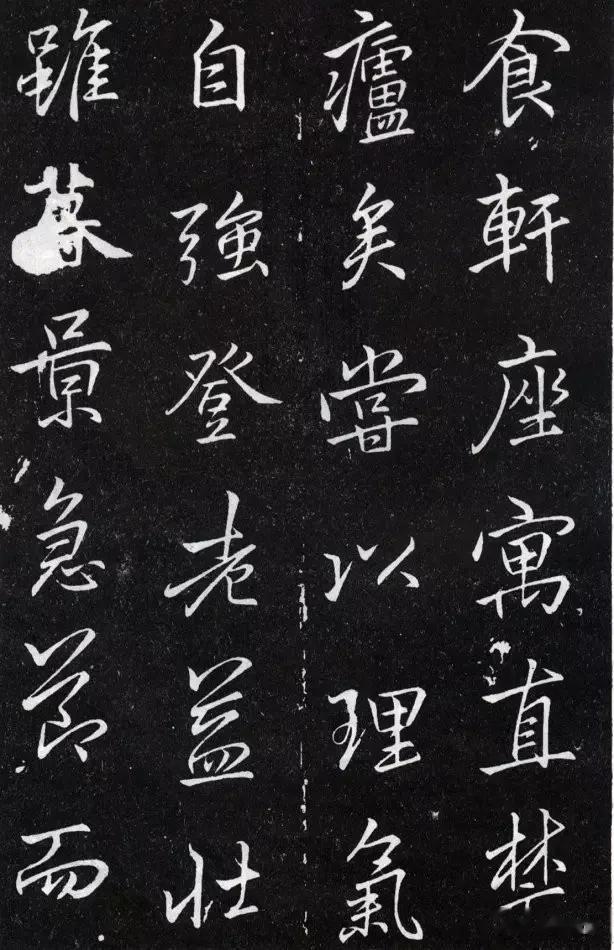 食軒座寓直禁
廬矣甞以理氣
自強登老益壯
雖暮景急節而